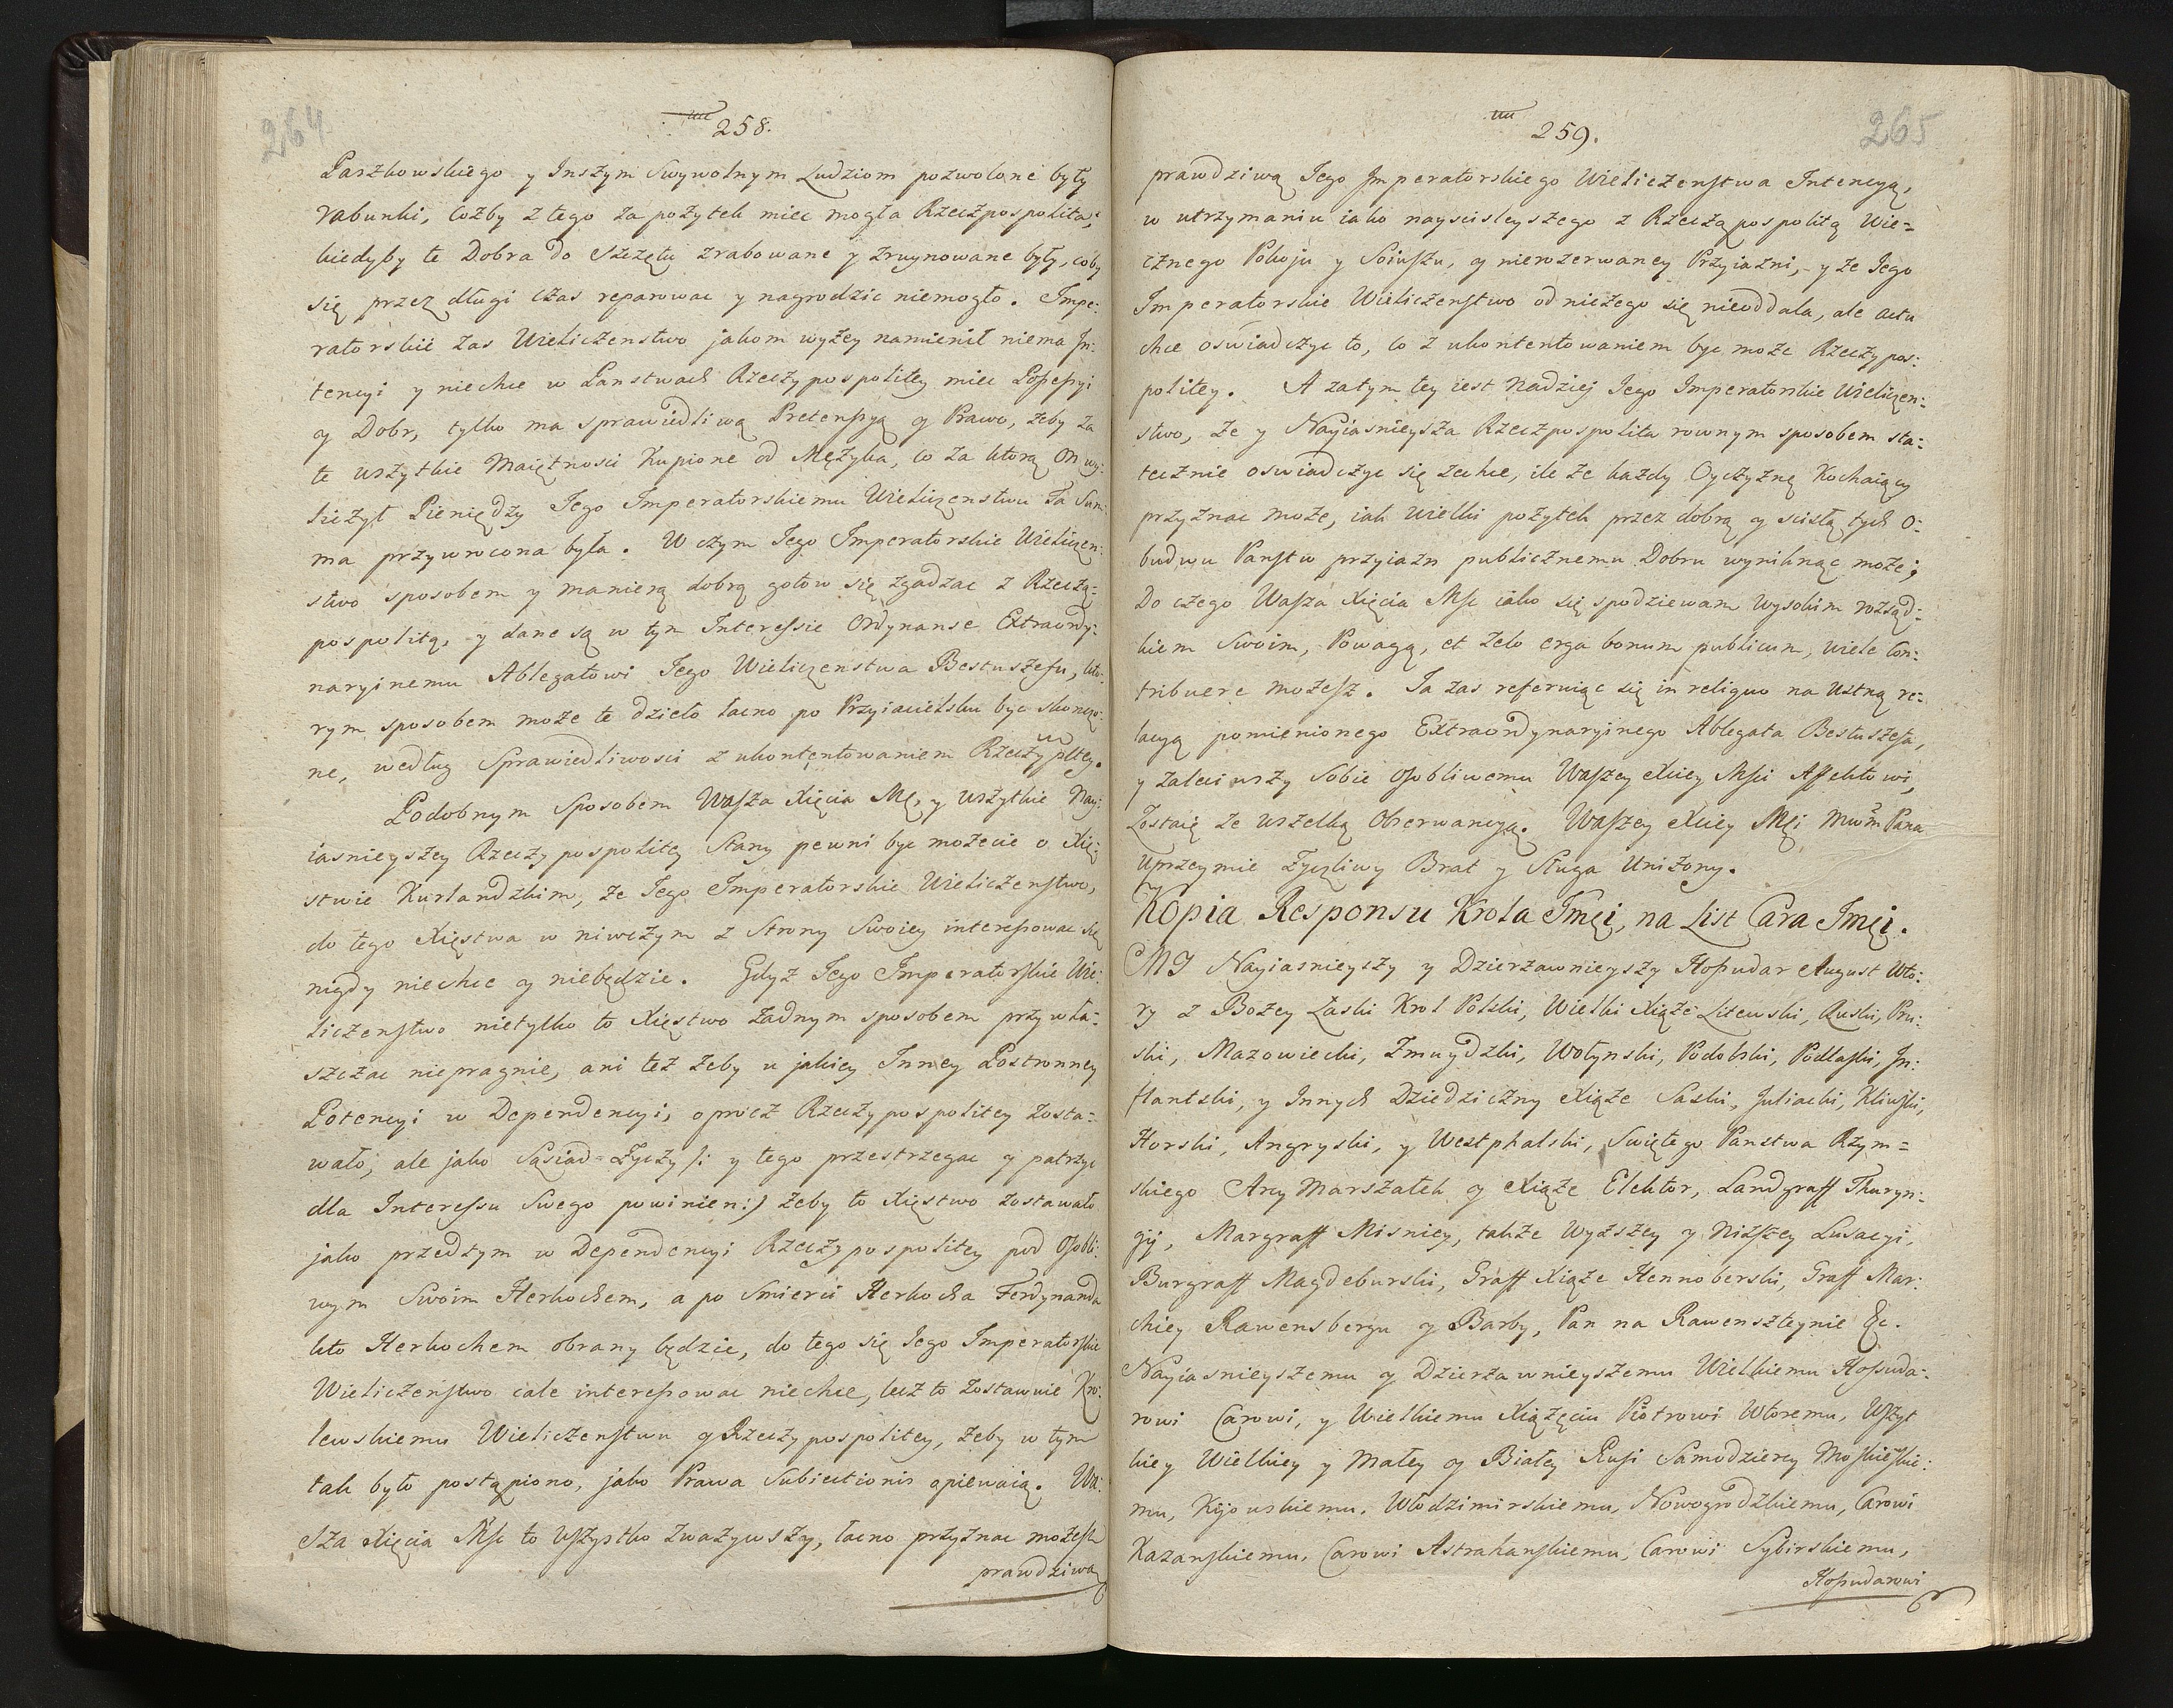 264
258.
Paszkowskiego y Inszym Swywolnym Ludziom pozwolone były
rabunki, cożby z tego za pożytek miec mogła Rzeczpospolita,
kiedyby te Dobra do szczętu zrabowane y zruynowane były, coby
się przez długi czas reparowac y nagrodzic niemogło. Impe:
ratorskie zas Wieliczenstwo jakom wyżey namienił niema In:
tencyi y niechce w Panstwach Rzeczypospolitey miec Possessyi
y Dobr, tylko ma sprawiedliwą Pretensyą y Prawo, żeby za
te wszytkie Maiętnosci Kupione od Mężyka, co za ktorą On wy:
liczył Pieniędzy Jego Imperatorskiemu Wieliczenstwu Ta Sum:
ma przywrocona była. W czym Jego Imperatorskie Wieliczen:
stwo sposobem y manierą dobrą gotow się zgadzac z Rzecżą:
pospolitą, y dane są w tym Interessie Ordynanse Extraordy:
naryinemu Ablegatowi Jego Wieliczenstwa Bestuszefu, kto:
rym sposobem może te dzieło łacno po Przyiacielsku byc skonczo:
ne, według Sprawiedliwosci z ukontentowaniem Rzeczypltey.
Podobnym Sposobem Wasza Xięcia Mć, y wszytkie Nay:
iasnieyszey Rzeczypospolitey Stany pewni byc możecie o Xię:
stwie Kurlandzkim, że Jego Imperatorskie Wieliczenstwo,
do tego Xięstwa w niwczym z Strony Swoiey interessowac się
nigdy niechce y niebędzie. Gdyż Jego Imperatorskie Wie:
liczenstwo nietylko to Xięstwo żadnym sposobem przywła:
szczac niepragnie, ani też żeby u jakiey Inney Postronney
Potencyi w Dependencyi, oprócz Rzeczypospolitey zosta:
wało; ale jako Sąsiad Zyczy /: y tego przestrzegac y patrzyc
dla Interessu Swego powinien:) żeby to Xięstwo zostawało
jako przedtym w Dependencyi Rzeczypospolitey pod Osobli:
wym Swoim Herkochem, a po Smierci Herkocha Ferdynanda
kto Herkochem obrany będzie, do tego się Jego Imperatorskie
Wieliczenstwo cale interessowac niechce, lecz to zostawuie Kro:
lewskiemu Wieliczenstwu y Rzeczypospolitey, żeby w tym
tak było postąpiono, jako Prawa Subiectionis opiewaią. Wa:
sza Xięcia Msc to wszystko zważywszy, łacno przyznac możesz
prawdziwą
265
259.
prawdziwą Jego Imperatorskiego Wieliczenstwa Intencyą,
w utrzymaniu iako nayscisleyszego z Rzecząpospolitą Wie=
cznego Pokoju y Soiuszu, y nierozerwaney Przyiazni, y że Jego
Imperatorskie Wieliczenstwo od niczego się nieoddala, ale actu
chce oświadczyc to, co z ukontentowaniem byc może Rzeczypos:
politey. A zatym tey iest Nadziej Jego Imperatorskie Wieliczen:
stwo, że y Nayiasnieysza Rzeczpospolita rownym sposobem sta:
tecznie oswiadczyc się zechce, ile że każdy Oyczyznę Kochaiący
przyznac może, iak wielki pożytek przez dobrą y scisłą tych O:
budwu Panstw przyiazn publicznemu Dobru wyniknąc może;
Do czego Wasza Xięcia Msc iako się spodziewam wysokim rozsąd:
kiem Swoim, Powagą, et zelo erga bonum publicum, wiele con:
tribuere możesz. Ja zas referuiąc się in reliquo na ustną re:
lacyą pomienionego Extraordynaryinego Ablegata Bestuszefa,
y zaleciwszy Sobie osobliwemu Waszey Xiey Msci Affektowi,
Zostaię ze wszelką Obserwancyą. Waszey Xiey Mci Mwm Pana
uprzeymie Zyczliwy Brat y Sługa Uniżony.
Kopia Responsu Krola Jmci, na List Cara Jmci.
MY Nayiasnieyszy y Dzierzawnieyszy Hosudar August Wto:
ry z Bożey Łaski Krol Polski, Wielki Xiąże Litewski, Ruski, Pru:
ski, Mazowiecki, Zmuydzki, Wołynski, Podolski, Podlaski, In:
flantski, y Innych Dziedziczny Xiąże Saski, Juliacki, Kliwski,
Horski, Angryski, y Westphalski, Swiętego Panstwa Rzym=
skiego Arcy Marszałek y Xiąże Elektor, Landgraff Thuryn:
gij, Margraff Misniey, także wyższey y Niższey Lusacyi,
Burgraff Magdeburski, Graff Xiąże Hennoberski, Graff Mar:
chiey Rawensbergu y Barby, Pan na Rawenszteynie &c.
Nayiasnieyszemu y Dzierzawnieyszemu Wielkiemu Hosuda:
rowi Carowi, y Wielkiemu Xiążęciu Piotrowi Wtoremu, Wszyt
kiey Wielkiey y Małey y Białey Rusi Samodziercy Moskieskie:
mu, Kijowskiemu, Włodzimirskiemu, Nowogrodzkiemu, Carowi
Kazanskiemu, Carowi Astrakanskiemu, Carowi Sybirskiemu,
Hosudarowi